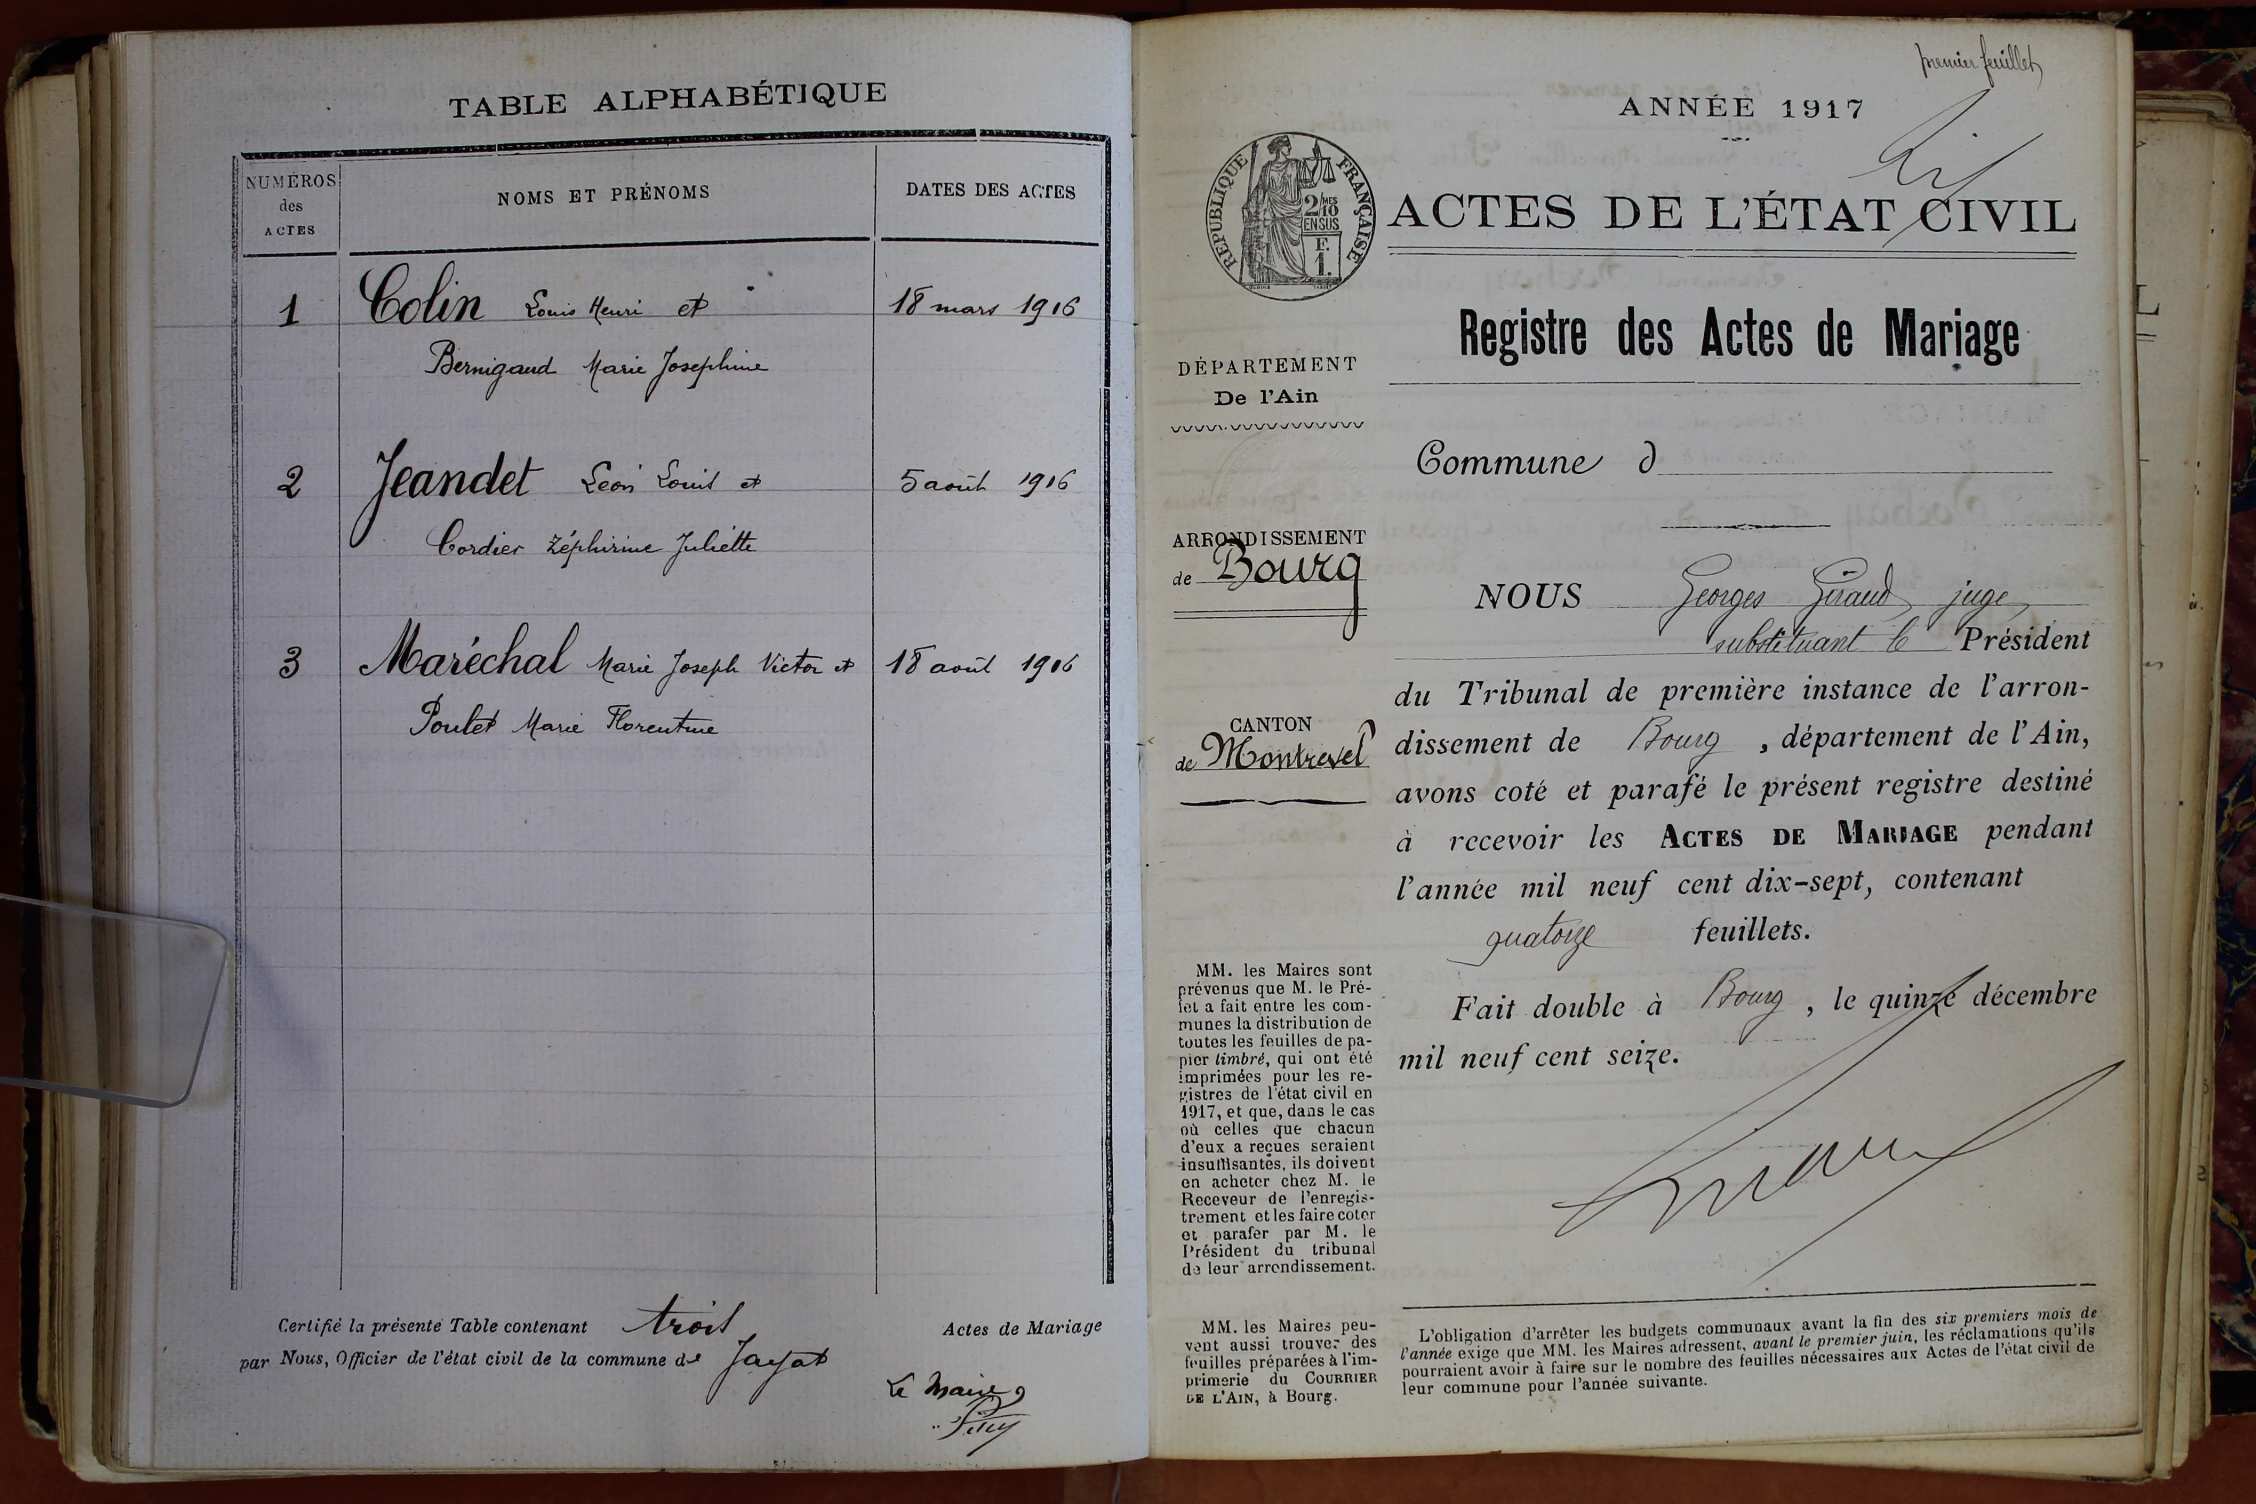 TABLE ALPHABÉTIQUE
NUMÉROS
des
ACTES
NOMS ET PRÉNOMS
DATES DES ACTES
1 Colin Louis Henri et 18 mars 1916
Bernigaud Marie Josephine
2 Jeandet Léon Louis et 5 août 1916
Cordier Zéphirine Juliette
3 Maréchal Marie Joseph Victor et 18 août 1916
Poulet Marie Florentine
Certifié la présente Table contenant trois Actes de Mariage
par Nous, Officier de l'état civil de la commune de Jayat
Le Maire
premier feuillet
ANNÉE 1917
RÉPUBLIQUE FRANÇAISE
2/10 MES
EN SUS
F.
1.
ACTES DE L'ÉTAT CIVIL
Registre des Actes de Mariage
DÉPARTEMENT
De l'Ain
ARRONDISSEMENT
de Bourg
CANTON
de Montrevel
MM. les Maires sont
prévenus que M. le Pré-
fet a fait entre les com-
munes la distribution de
toutes les feuilles de pa-
pier timbré, qui ont été
imprimées pour les re-
gistres de l'état civil en
1917, et que, dans le cas
où celles que chacun
d'eux a reçues seraient
insuffisantes, ils doivent
en acheter chez M. le
Receveur de l'enregis-
trement et les faire coter
et parafer par M. le
Président du tribunal
de leur arrondissement.
MM. les Maires peu-
vent aussi trouver des
feuilles préparées à l'im-
primerie du COURRIER
DE L'AIN, à Bourg.
Commune d
NOUS Georges Giraud juge
substituant le Président
du Tribunal de première instance de l'arron-
dissement de Bourg, département de l'Ain,
avons coté et parafé le présent registre destiné
à recevoir les ACTES DE MARIAGE pendant
l'année mil neuf cent dix-sept, contenant
quatorze feuillets.
Fait double à Bourg, le quinze décembre
mil neuf cent seize.
L'obligation d'arrêter les budgets communaux avant la fin des six premiers mois de
l'année exige que MM. les Maires adressent, avant le premier juin, les réclamations qu'ils
pourraient avoir à faire sur le nombre des feuilles nécessaires aux Actes de l'état civil de
leur commune pour l'année suivante.